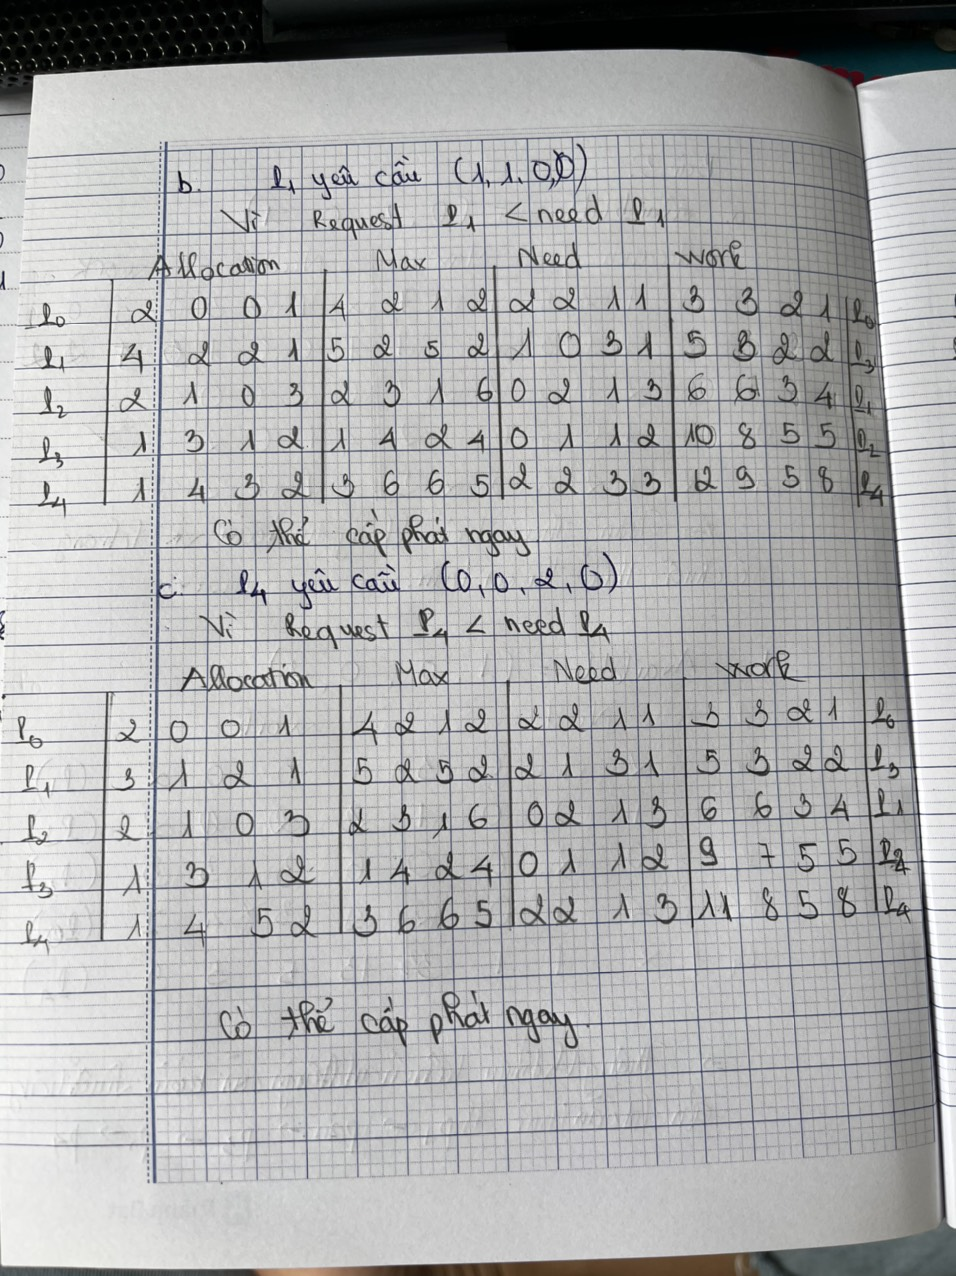 b. P₁ yêu cầu (1, 1, 0, 0)
Vì Request P₁ < need P₁
Allocation Max Need Work
P₀ 2 0 0 1 4 2 1 2 2 2 1 1 3 3 2 1 P₀
P₁ 4 2 2 1 5 2 5 2 1 0 3 1 5 3 2 2 P₃
P₂ 2 1 0 3 2 3 1 6 0 2 1 3 6 6 3 4 P₁
P₃ 1 3 1 2 1 4 2 4 0 1 1 2 10 8 5 5 P₂
P₄ 1 4 3 2 3 6 6 5 2 2 3 3 12 9 5 8 P₄
Có thể cấp phát ngay
c. P₄ yêu cầu (0, 0, 2, 0)
Vì Request P₄ < need P₄
Allocation Max Need Work
P₀ 2 0 0 1 4 2 1 2 2 2 1 1 3 3 2 1 P₀
P₁ 3 1 2 1 5 2 5 2 2 1 3 1 5 3 2 2 P₃
P₂ 2 1 0 3 2 3 1 6 0 2 1 3 6 6 3 4 P₁
P₃ 1 3 1 2 1 4 2 4 0 1 1 2 9 7 5 5 P₂
P₄ 1 4 5 2 3 6 6 5 2 2 1 3 11 8 5 8 P₄
Có thể cấp phát ngay.